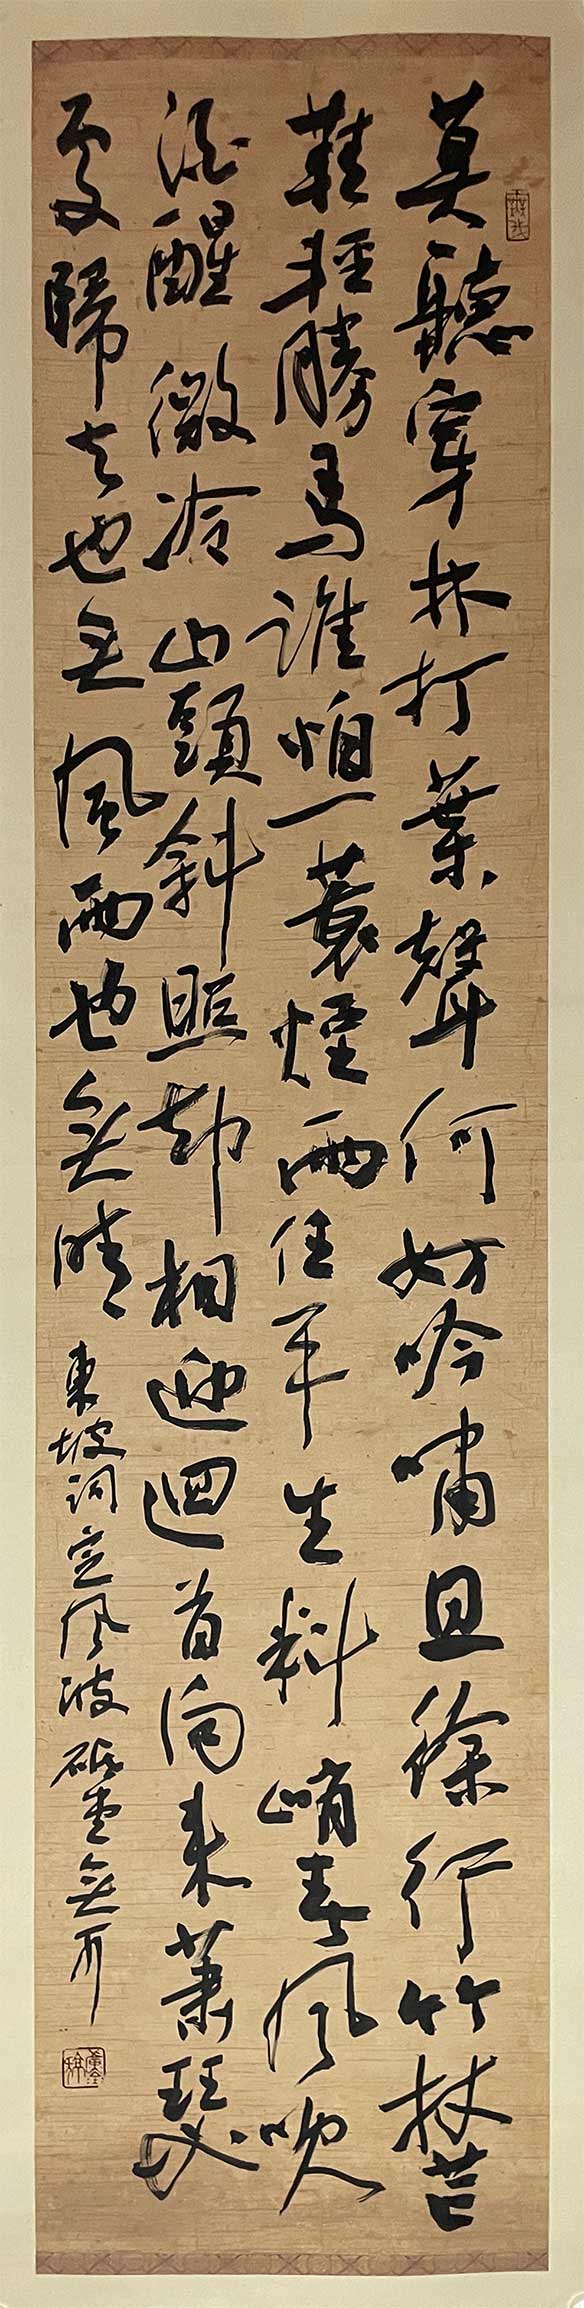 莫聽穿林打葉聲何妨吟嘯且徐行竹杖芒
鞋輕勝馬誰怕一蓑煙雨任平生料峭春風吹
酒醒微冷山頭斜照却相迎迴首向來蕭瑟
處歸去也無風雨也無晴東坡詞定風波